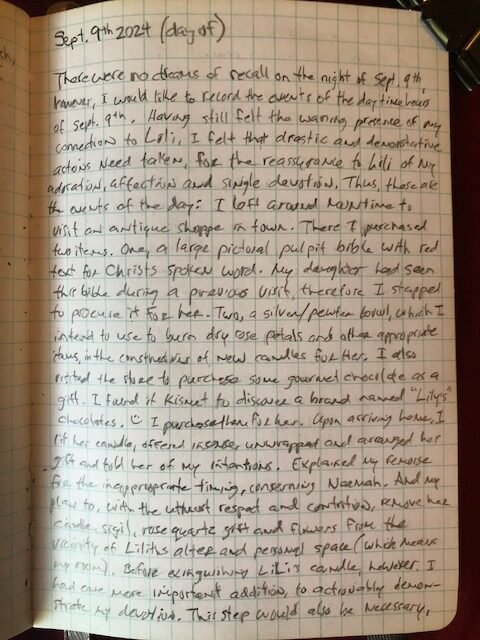 Sept. 9th 2024 (day of)
There were no dreams of recall on the night of Sept. 9th,
however, I would like to record the events of the daytime hours
of Sept. 9th. Having still felt the waning presence of my
connection to Lili, I felt that drastic and demonstative
actions need taken, for the reassurance to Lili of my
adoration, affection and single devotion. Thus, these are
the events of the day: I left around noontime to
visit an antique shoppe in town. There I purchased
two items. One, a large pictorial pulpit bible with red
text for Christs spoken word. My daughter had seen
this bible during a previous visit, therefore I stopped
to procure it for her. Two, a silver/pewter bowl, which I
intend to use to burn dry rose petals and other appropriate
items, in the constructions of new candles for her. I also
visited the store to purchase some gourmet chocolate as a
gift. I found it Kismet to discover a brand named "Lily's"
chocolates. I purchase them for her. Upon arriving home, I
lit her candle, offered incense, unwrapped and arranged her
gift and told her of my intentions. Explained my remorse
for the inappropriate timing, conserning Naamah. And my
plan to, with the uttmost respect and contrition, remove her
candle, sigil, rose quartz gift and flowers from the
vicinity of Liliths alter and personal space (which means
my room). Before extinguishing Lili's candle, however. I
had one more important addition, to actionably demon-
strate my devotion. This step would also be necessary,